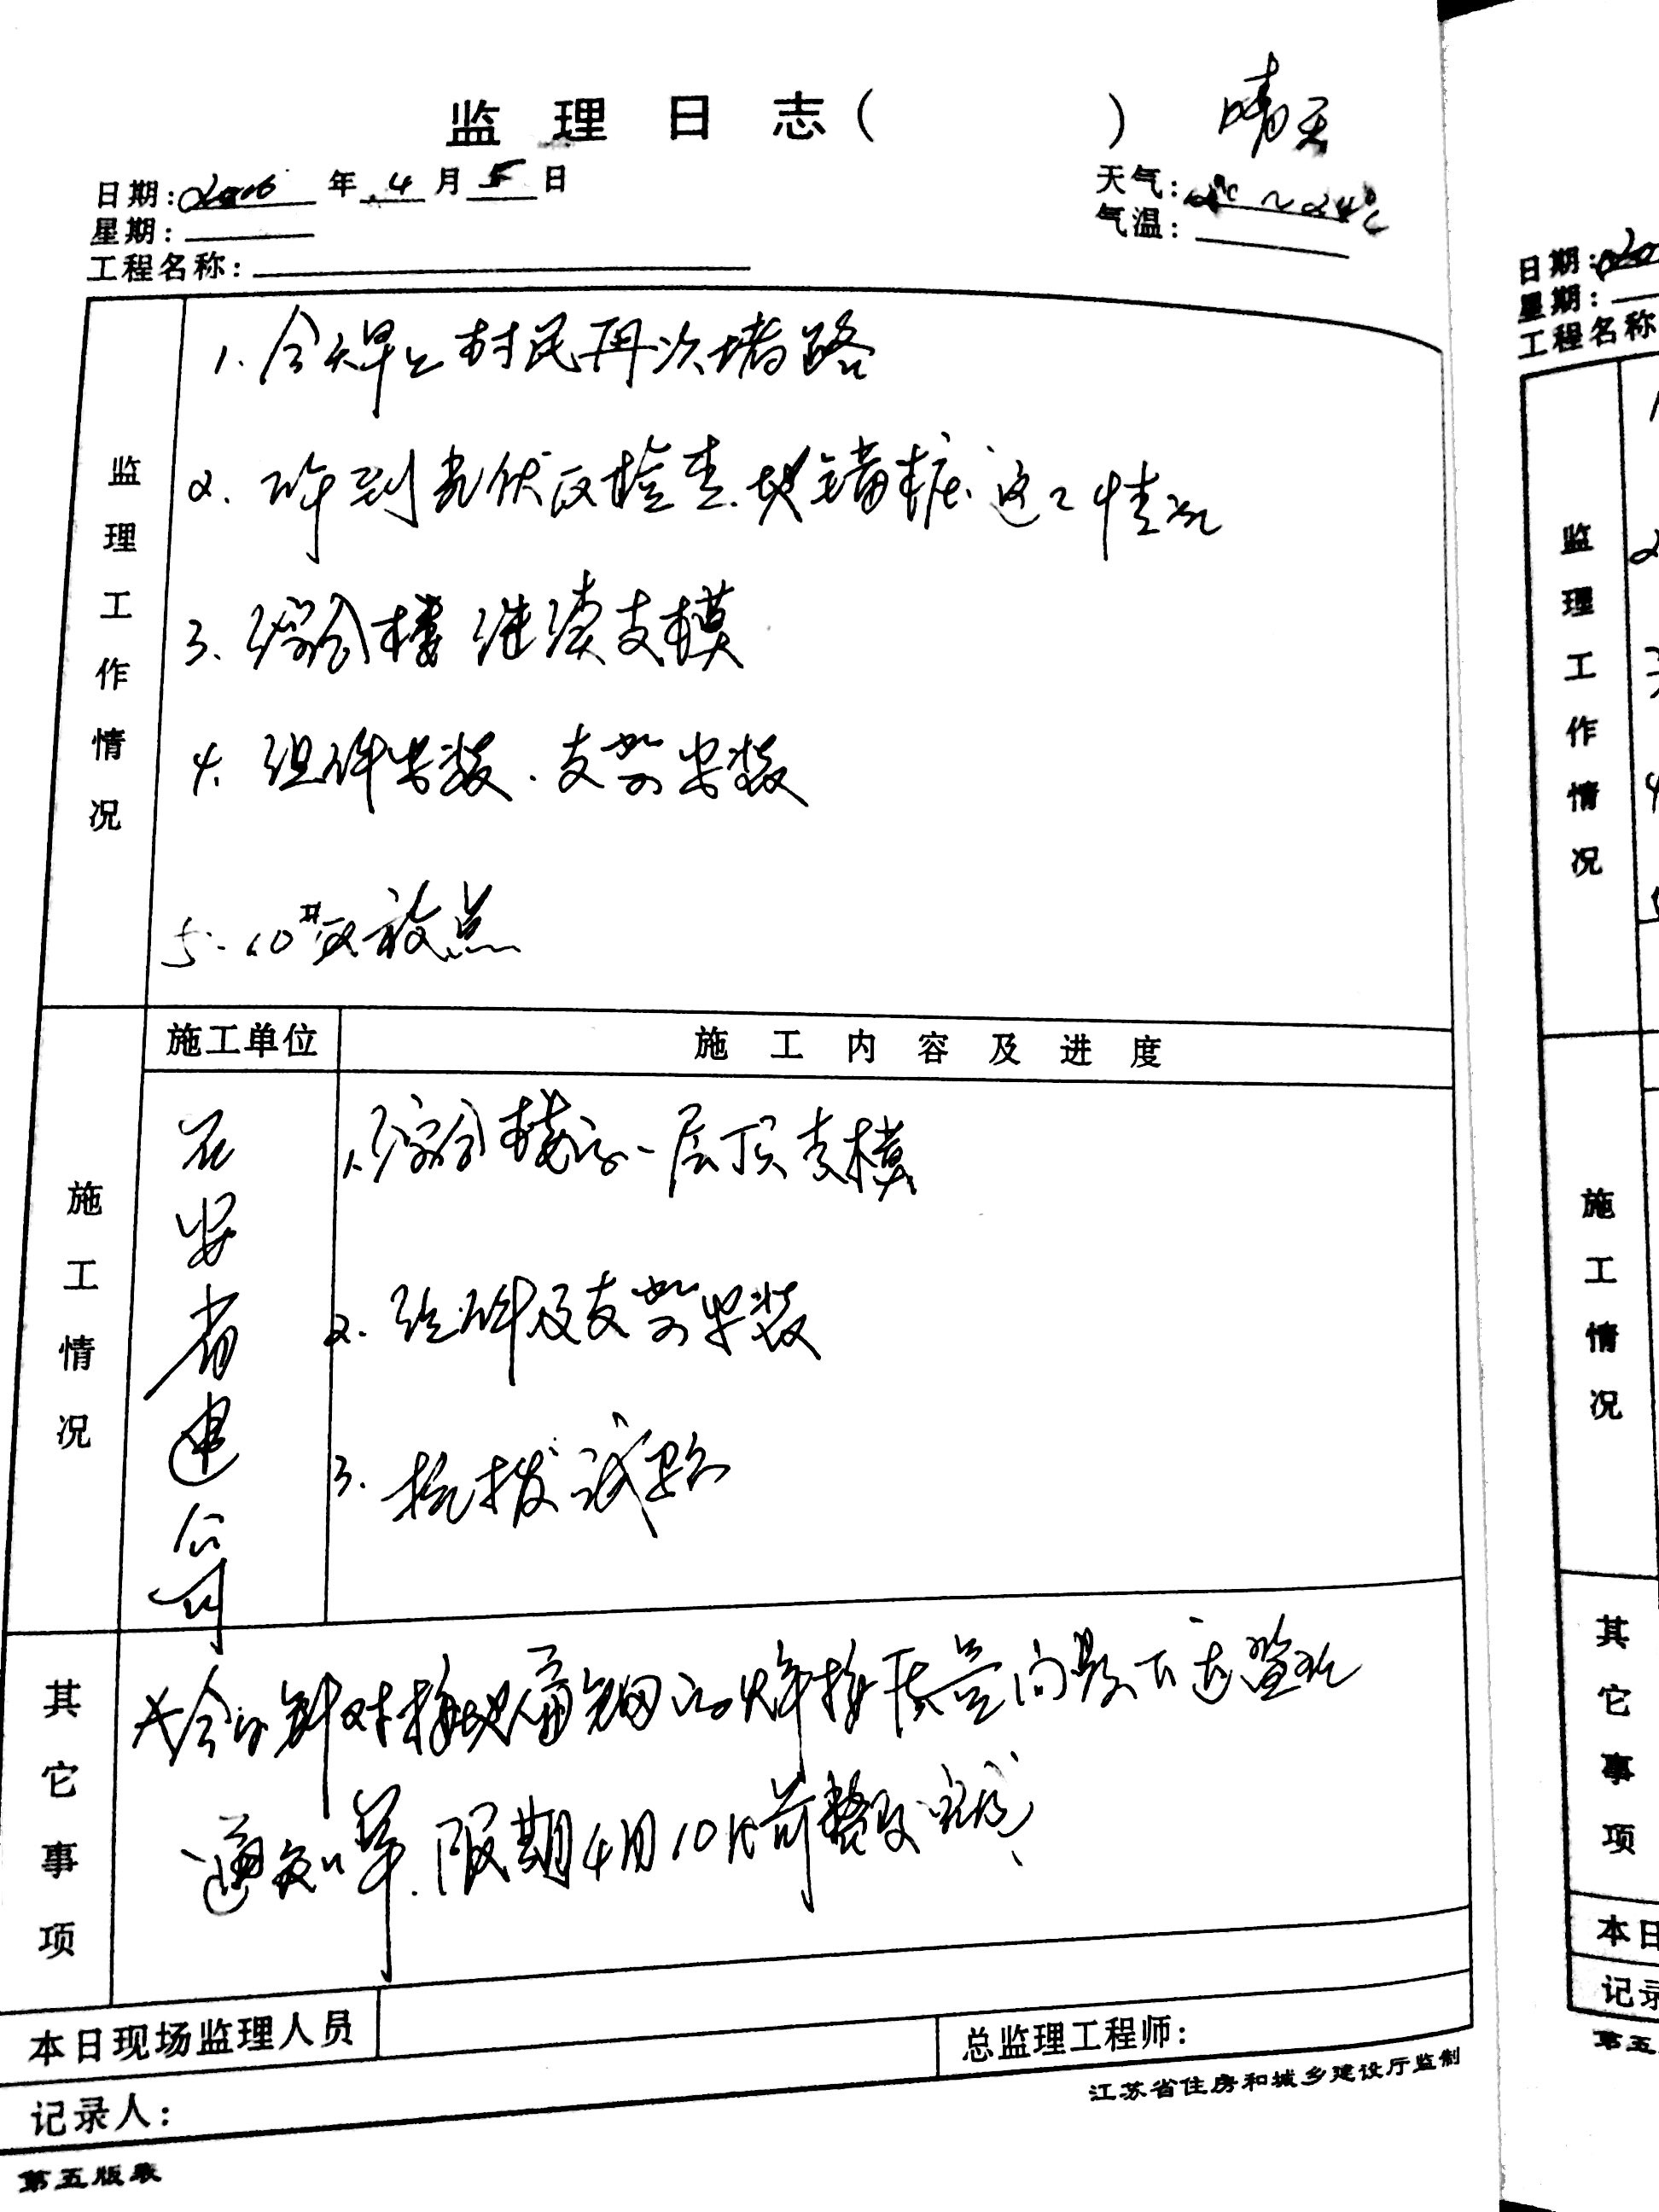 监理日志（ ） 晴天
日期：2016年4月5日
天气：2℃～24℃
星期：
气温：
工程名称：
监理工作情况
1. 今天早上村民再次堵路
2. 下午到光伏区检查地锚桩施工情况
3. 综合楼继续支模
4. 组件安装、支架安装
5. 10#区放点
施工情况
施工单位
施工内容及进度
安省建公司
1. 综合楼一层顶支模
2. 组件及支架安装
3. 抗拔试验
其它事项
今日针对接地扁钢的焊接质量问题下达监理
通知单，限期4月10日前整改完成
本日现场监理人员
总监理工程师：
记录人：
江苏省住房和城乡建设厅监制
第五版表
日期：
星期：
工程名称
监理工作情况
施工情况
其它事项
本日
记录
第五